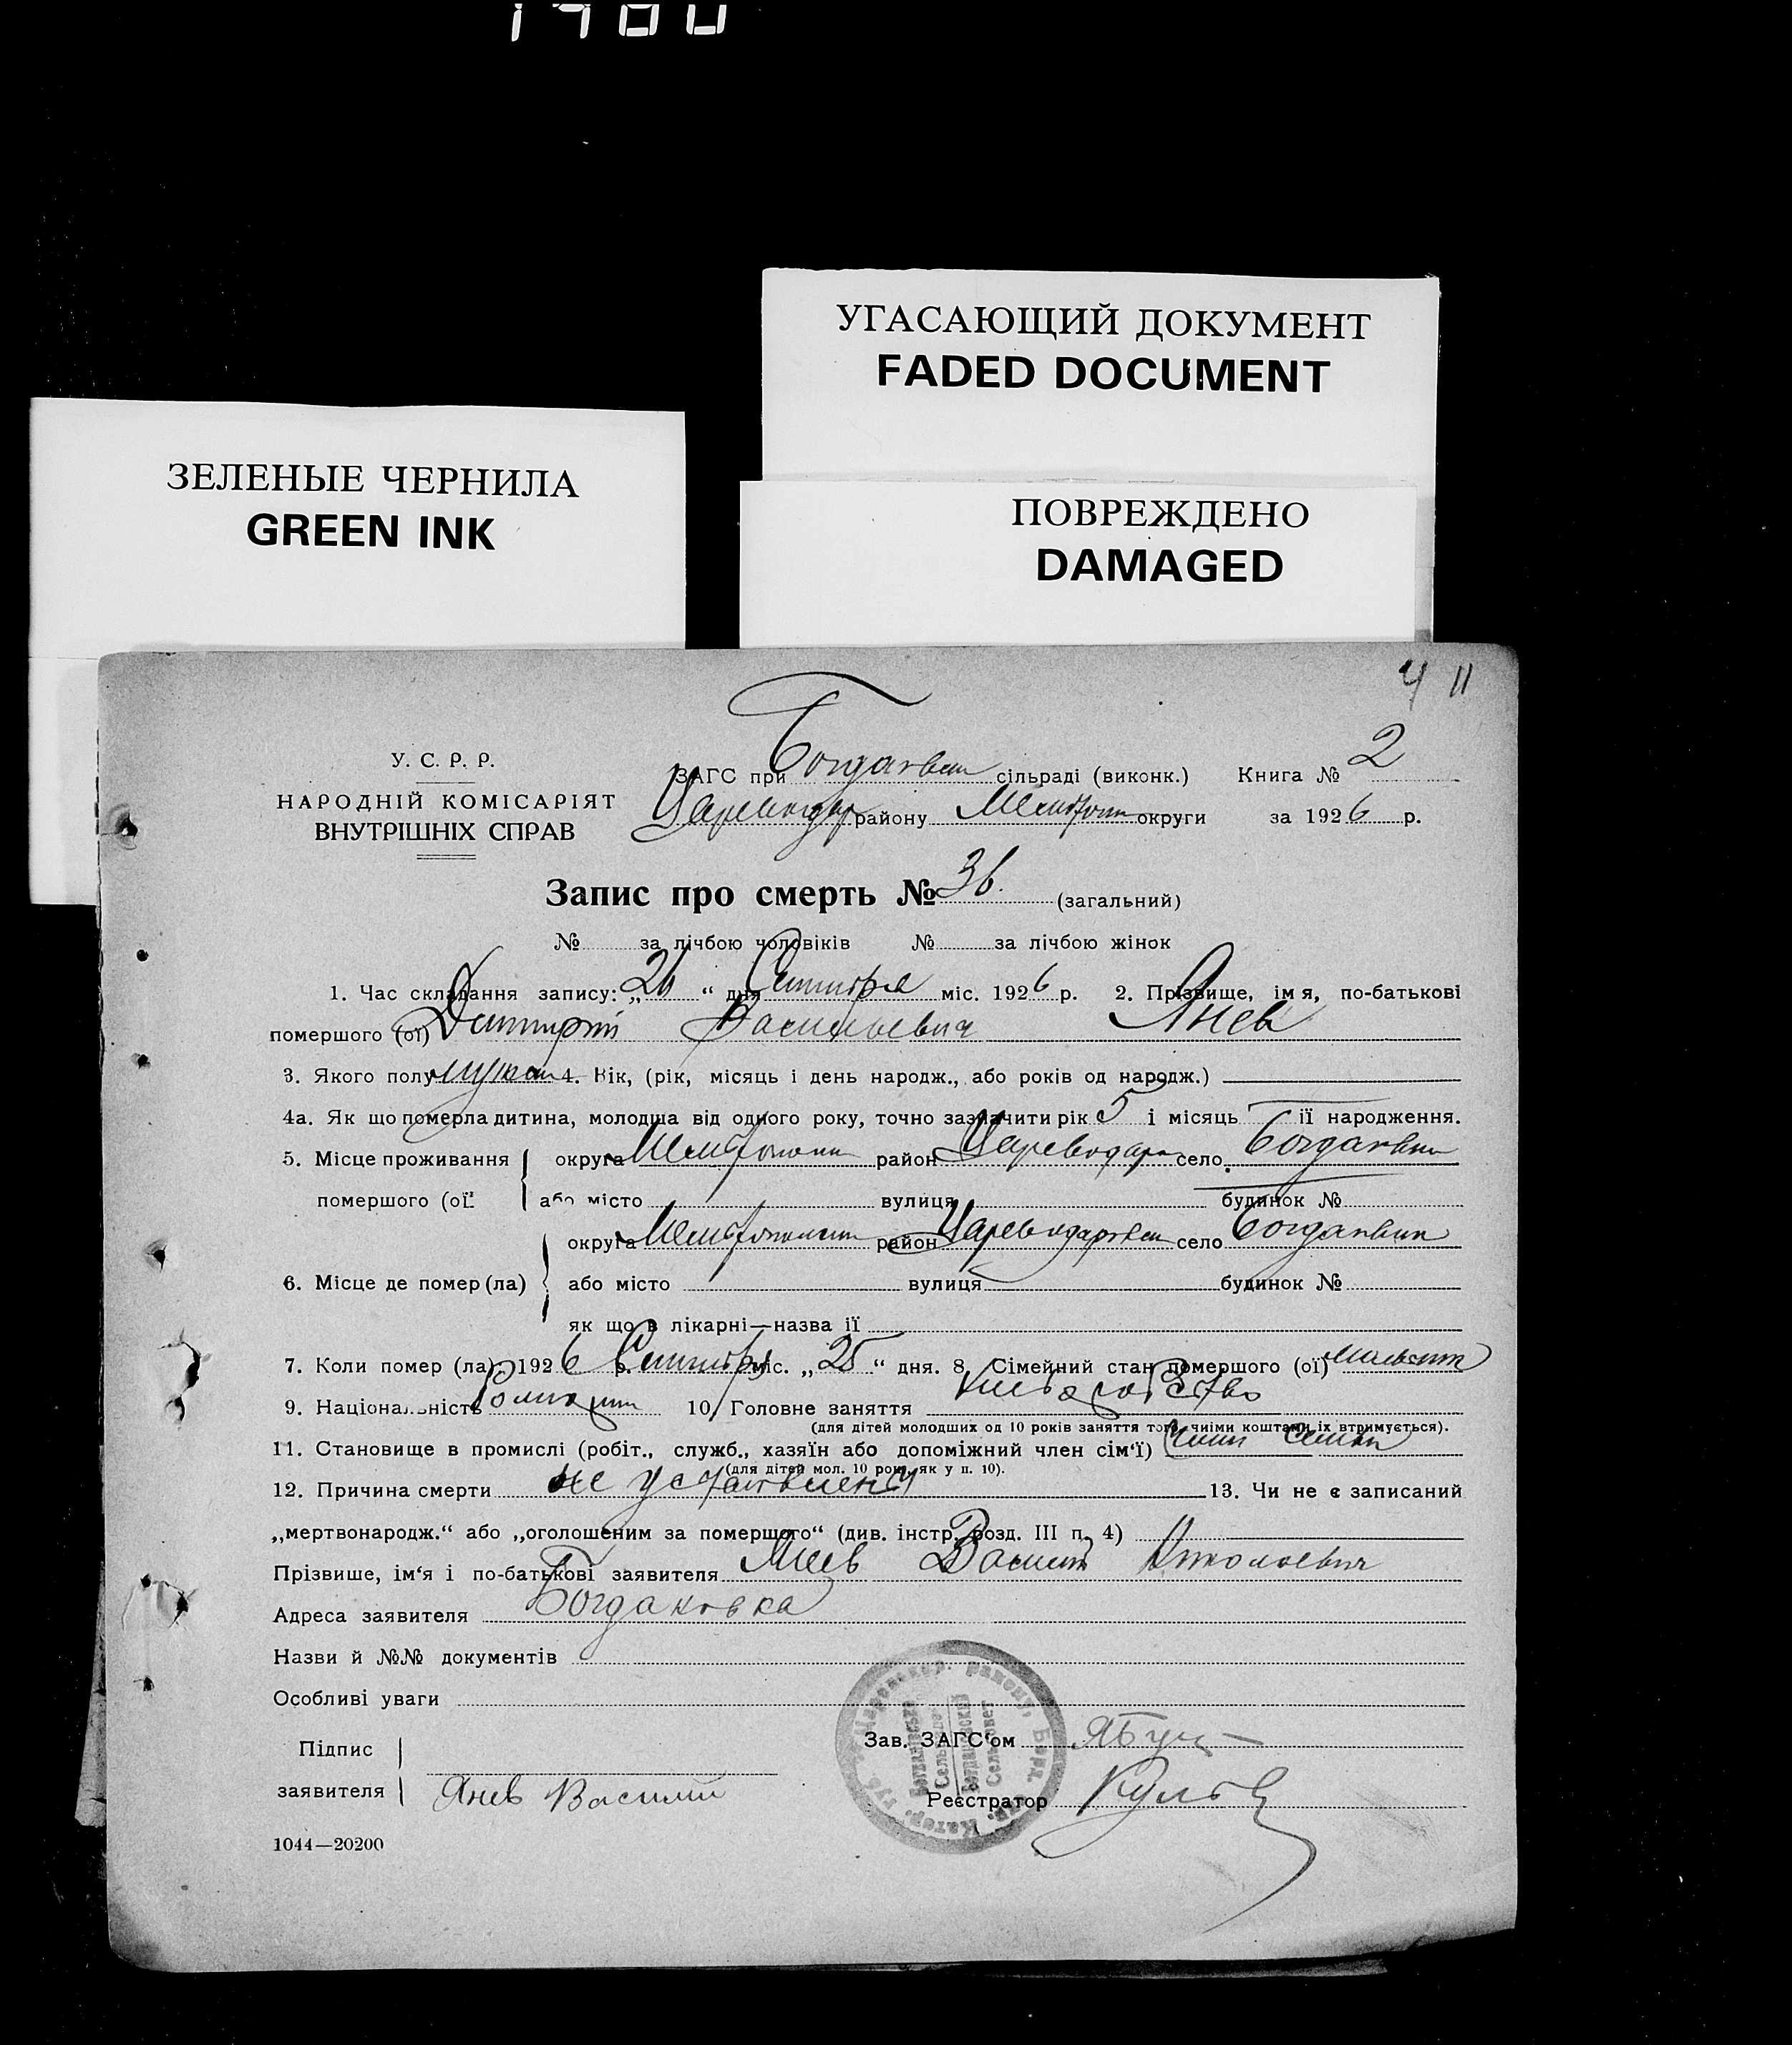 1980
УГАСАЮЩИЙ ДОКУМЕНТ
FADED DOCUMENT
ЗЕЛЕНЫЕ ЧЕРНИЛА
GREEN INK
ПОВРЕЖДЕНО
DAMAGED
4 11
У. С. Р. Р.
НАРОДНІЙ КОМІСАРІЯТ
ВНУТРІШНІХ СПРАВ
ЗАГС при Богданвки сільраді (виконк.) Книга № 2
Цареводар району Мелитоп округи за 1926 р.
Запис про смерть № 36. (загальний)
№ за лічбою чоловіків № за лічбою жінок
1. Час складання запису: „26“ дня Сентября міс. 1926 р. 2. Прізвище, імя, по-батькові
помершого (ої) Дмитрий Васильевич Янев
3. Якого полу мужск 4. Вік, (рік, місяць і день народж., або років од народж.)
4а. Як що померла дитина, молодша від одного року, точно зазначити рік 5 і місяць її народження.
5. Місце проживання округа район село
помершого (ої) або місто вулиця будинок №
округа район село
6. Місце де помер (ла) або місто вулиця будинок №
як що в лікарні—назва її
7. Коли помер (ла): 1926 р. Сентября міс. „25“ дня. 8. Сімейний стан помершого (ої)
9. Національність 10. Головне заняття
(для дітей молодших од 10 років заняття того, чиїми коштами їх втримується).
11. Становище в промислі (робіт., служб., хазяїн або допоміжний член сім‘ї) член семьи
(для дітей мол. 10 рок. як у п. 10).
12. Причина смерти не установлена 13. Чи не є записаний
„мертвонародж.“ або „оголошеним за помершого“ (див. інстр. розд. III п. 4)
Прізвише, ім‘я і по-батькові заявителя Янев Василий Николаевич
Адреса заявителя Богдановка
Назви й №№ документів
Особливі уваги
Підпис
заявителя Янев Василий
Зав. ЗАГС‘ом
Реєстратор
1044—20200